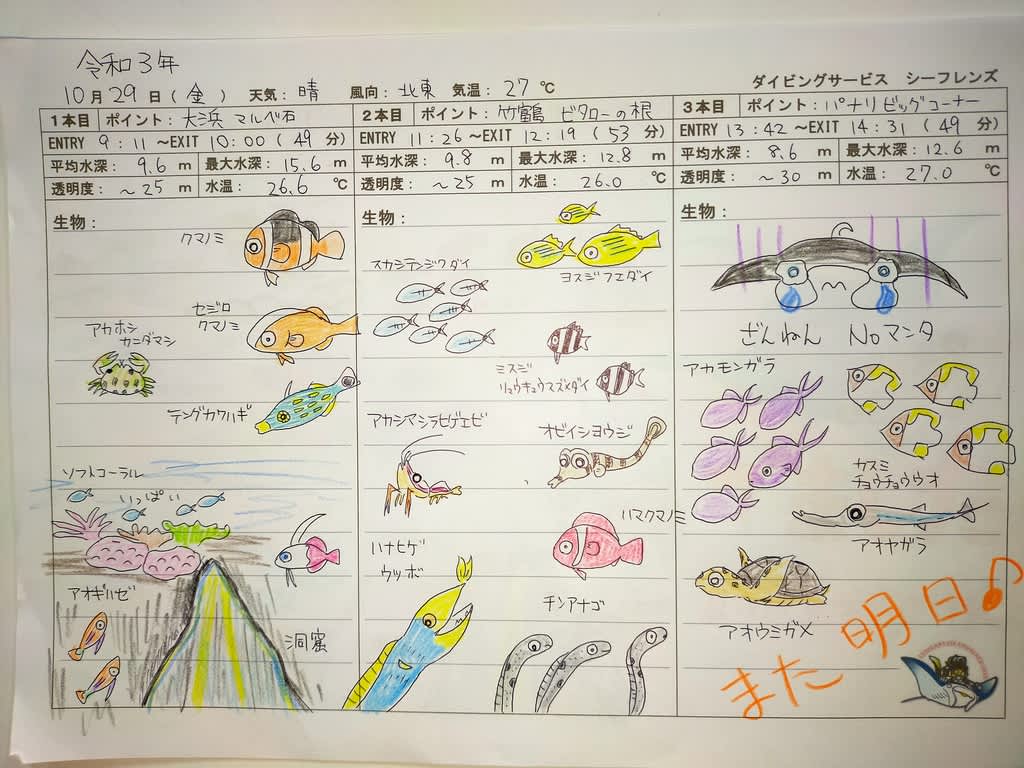 令和3年
10月29日(金) 天気:晴 風向:北東 気温:27℃
ダイビングサービス シーフレンズ
1本目 ポイント:大浜 マルベ石
ENTRY 9:11 ~EXIT 10:00 (49 分)
平均水深: 9.6 m 最大水深: 15.6 m
透明度: ~25 m 水温: 26.6 ℃
生物:
クマノミ
セジロ
クマノミ
アカホシ
カニダマシ
テングカワハギ
ソフトコーラル
いっぱい
アオギハゼ
洞窟
2本目 ポイント:竹鶴 ビタローの根
ENTRY 11:26 ~EXIT 12:19 (53 分)
平均水深: 9.8 m 最大水深: 12.8 m
透明度: ~25 m 水温: 26.0 ℃
生物:
スカシテンジクダイ
ヨスジフエダイ
ミスジ
リュウキュウスズメダイ
アカシマシラヒゲエビ
オビイシヨウジ
ハマクマノミ
ハナヒゲ
ウツボ
チンアナゴ
3本目 ポイント:パナリビッグコーナー
ENTRY 13:42 ~EXIT 14:31 (49 分)
平均水深: 8.6 m 最大水深: 12.6 m
透明度: ~30 m 水温: 27.0 ℃
生物:
ざんねん Noマンタ
アカモンガラ
カスミ
チョウチョウウオ
アオヤガラ
アオウミガメ
また明日♪